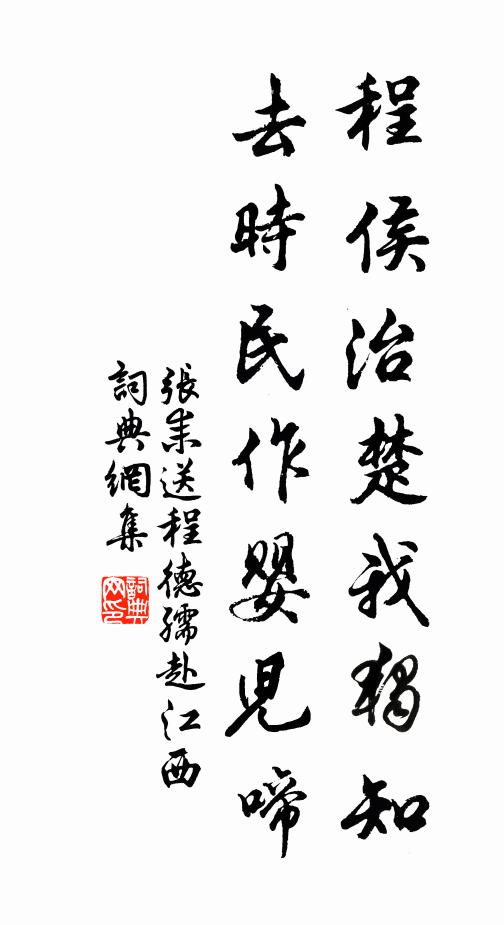 程侯治楚我獨知
去時民作嬰児啼
張耒送程德孺赴江西
詞典網集
詞典网印